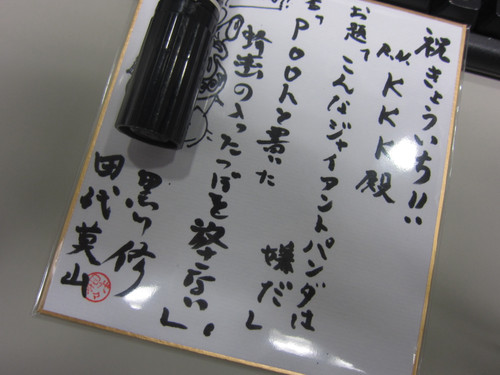 祝きょういち!!
R.N. KKK殿
お題「こんなジャイアントパンダは
嫌だ」
Poohと書いた
蜂蜜の入ったつぼを放さない」。
黒川 修
田代 莫山